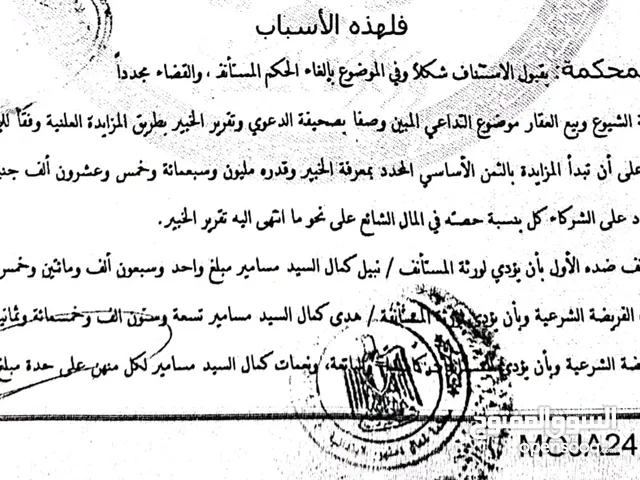 فلهذه الأسباب
لمحكمة: بقبول الاستئناف شكلاً وفي الموضوع بإلغاء الحكم المستأنف، والقضاء مجدداً
ة الشيوع وبيع العقار موضوع التداعي المبين وصفا بصحيفة الدعوي وتقرير الخبير بطريق المزايدة العلنية وفقاً
على أن تبدأ المزايدة بالثمن الأساسي المحدد بمعرفة الخبير وقدره مليون وسبعمائة وخمس وعشرون ألف جنيـ
د على الشركاء كل بنسبة حصته في المال الشائع على نحو ما انتهى اليه تقرير الخبير.
ف ضده الأول بأن يؤدي لورثة المستأنف / نبيل كمال السيد مسامير مبلغ واحد وسبعون ألف ومائتين وخمس
الفريضة الشرعية وبأن يؤدي لورثة المستأنفة / هدى كمال السيد مسامير تسعة وستون الف وخمسمائة وثمانية
ضة الشرعية وبأن يؤدي ونعمات كمال السيد مسامير لكل منهن على حدة مبلغ
السوق المفتوح
opensooq
MOJA24